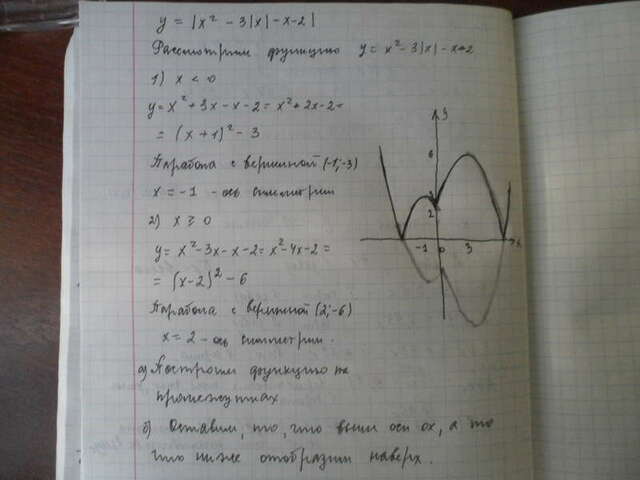 y = |x² - 3|x| - x - 2|
Рассмотрим функцию y = x² - 3|x| - x - 2
1) x < 0
y = x² + 3x - x - 2 = x² + 2x - 2 =
= (x + 1)² - 3
Парабола с вершиной (-1; -3)
x = -1 - ось симметрии
2) x ≥ 0
y = x² - 3x - x - 2 = x² - 4x - 2 =
= (x - 2)² - 6
Парабола с вершиной (2; -6)
x = 2 - ось симметрии.
а) Построим функцию на
промежутках
б) Оставим, то, что выше оси ох, а то
что ниже отобразим наверх.
y
6
3
2
-1 0 3 x